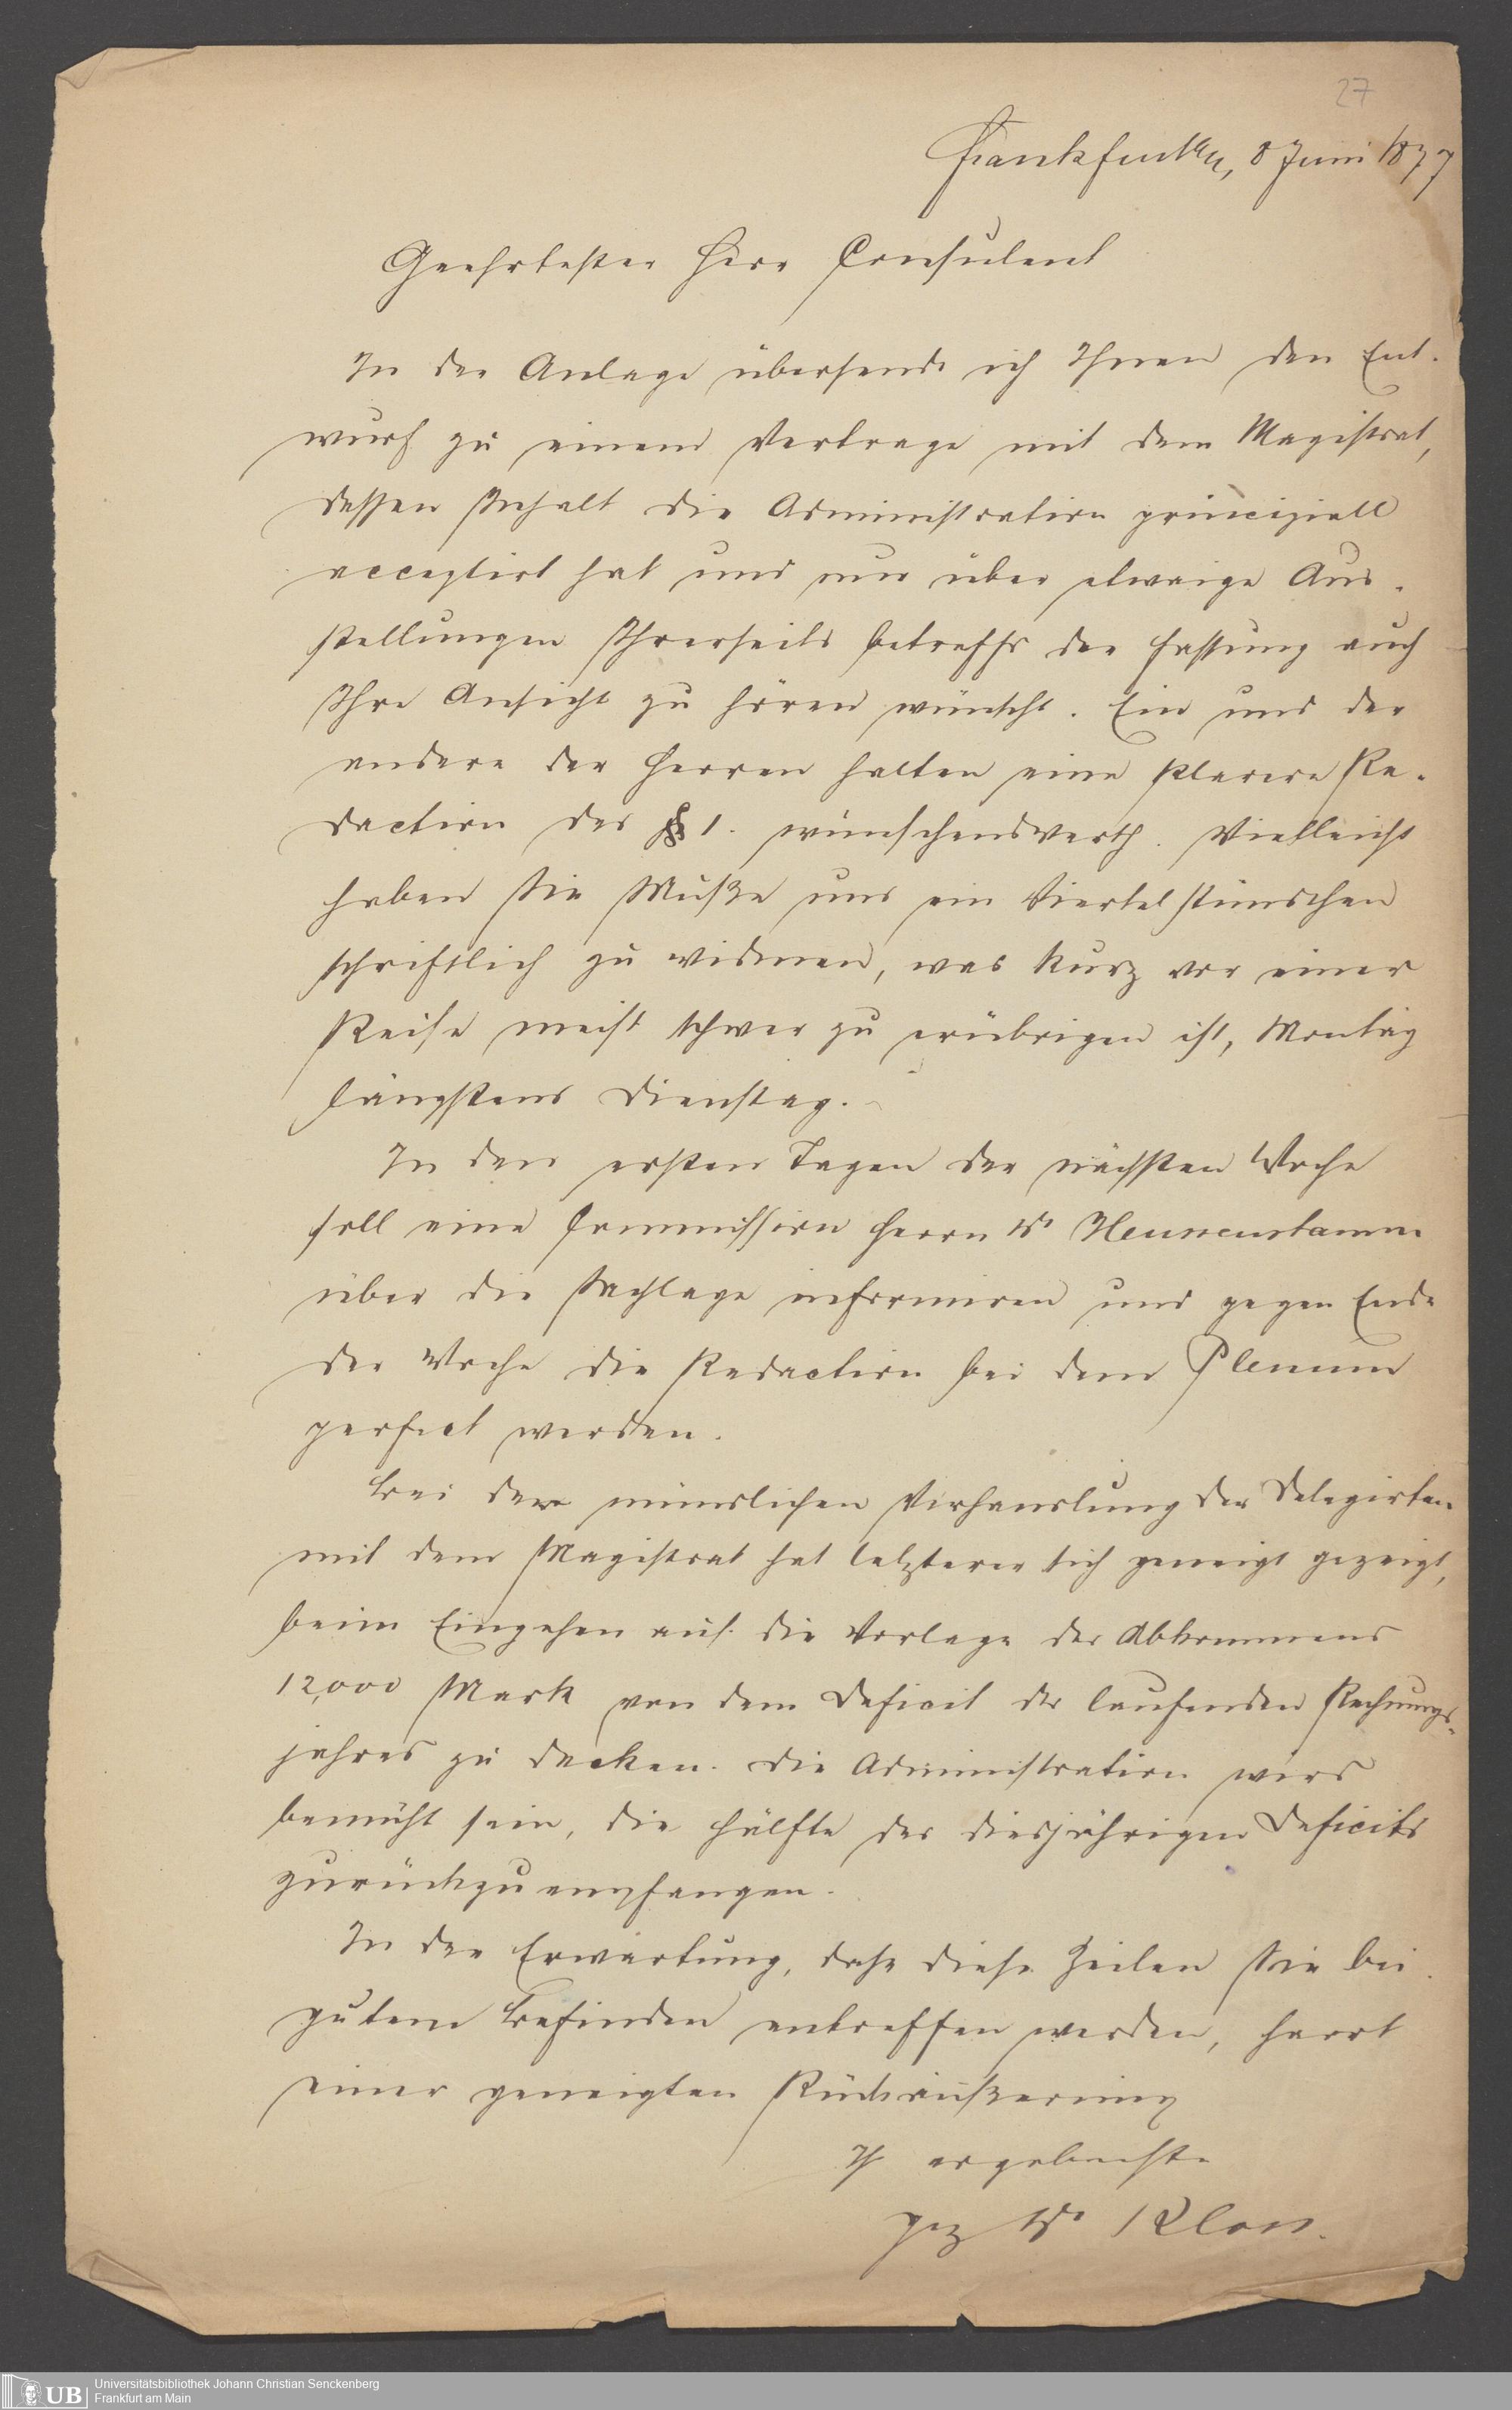 27
Frankfurt a/M, 8 Juni 1877
Geehrtester Herr Consulent
In der Anlage übersende ich Ihnen den Ent-
wurf zu einem Vertrage mit dem Magistrat,
dessen Inhalt die Administration principiell
acceptirt hat und nur über etwaige Aus-
stellungen Ihrerseits betreffs der Fassung auch
Ihre Ansicht zu hören wünscht. Ein und der
andere der Herren halten eine klarere Re-
daction des § 1. wünschenswerth. Vielleicht
haben Sie Muße uns ein Viertelstündchen
schriftlich zu widmen, was kurz vor einer
Reise meist schwer zu erübrigen ist, Montag
längstens Dienstag.
In den ersten Tagen der nächsten Woche
soll eine Commission Herrn Dr Heussenstamm
über die Sachlage informiren und gegen Ende
der Woche die Redaction bei dem Plenum
perfect werden.
Bei der mündlichen Verhandlung der Delegirten
mit dem Magistrat hat letzterer sich geneigt gezeigt,
beim Eingehen auf die Vorlage des Abkommens
12,000 Mark von dem Deficit des laufenden Rechnungs-
jahres zu decken. Die Administration wird
bemüht sein, die Hälfte des diesjährigen Deficits
zurückzuempfangen.
In der Erwartung, daß diese Zeilen Sie bei
gutem Befinden antreffen werden, harrt
einer geneigten Rückäußerung
Ihr ergebenster
gez Dr Kloss.
Universitätsbibliothek Johann Christian Senckenberg
Frankfurt am Main
UB